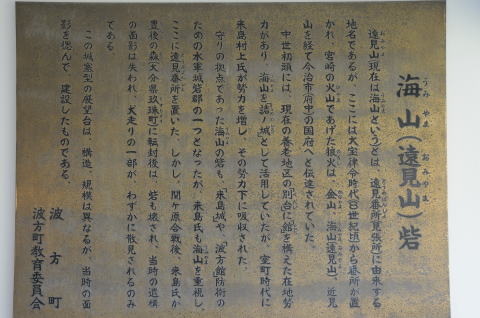 海山(遠見山)砦
うみやま おみやま
遠見山(現在は海山という)とは、遠見番所見張所に由来する
地名であるが、ここには大宝律令時代(8世紀頃)から番所が置
かれ、宮崎の火山であげた狼火は、金山、海山(遠見山)、近見
山を経て今治市府中の国府へと伝達されていた。
中世初頭には、現在の養老地区の別台に館を構えた在地勢
力があり、海山を詰城として活用していたが、室町時代に
来島村上氏が勢力を増し、その勢力下に吸収された。
守りの拠点であった海山の砦も、「来島城」や「波方館」防衛の
ための水軍城砦郡の一つとなったが、来島氏も海山を重視し、
ここに遠見番所を置いた。しかし、関ヶ原合戦後、来島氏が
豊後の森(大分県玖珠町)に転封後は、砦も壊され、当時の遺構
の面影は失われ、犬走りの一部が、わずかに散見されるのみ
である。
この城塞型の展望台は、構造、規模は異なるが、当時の面
影を偲んで、建設したものである。
波方町
波方町教育委員会